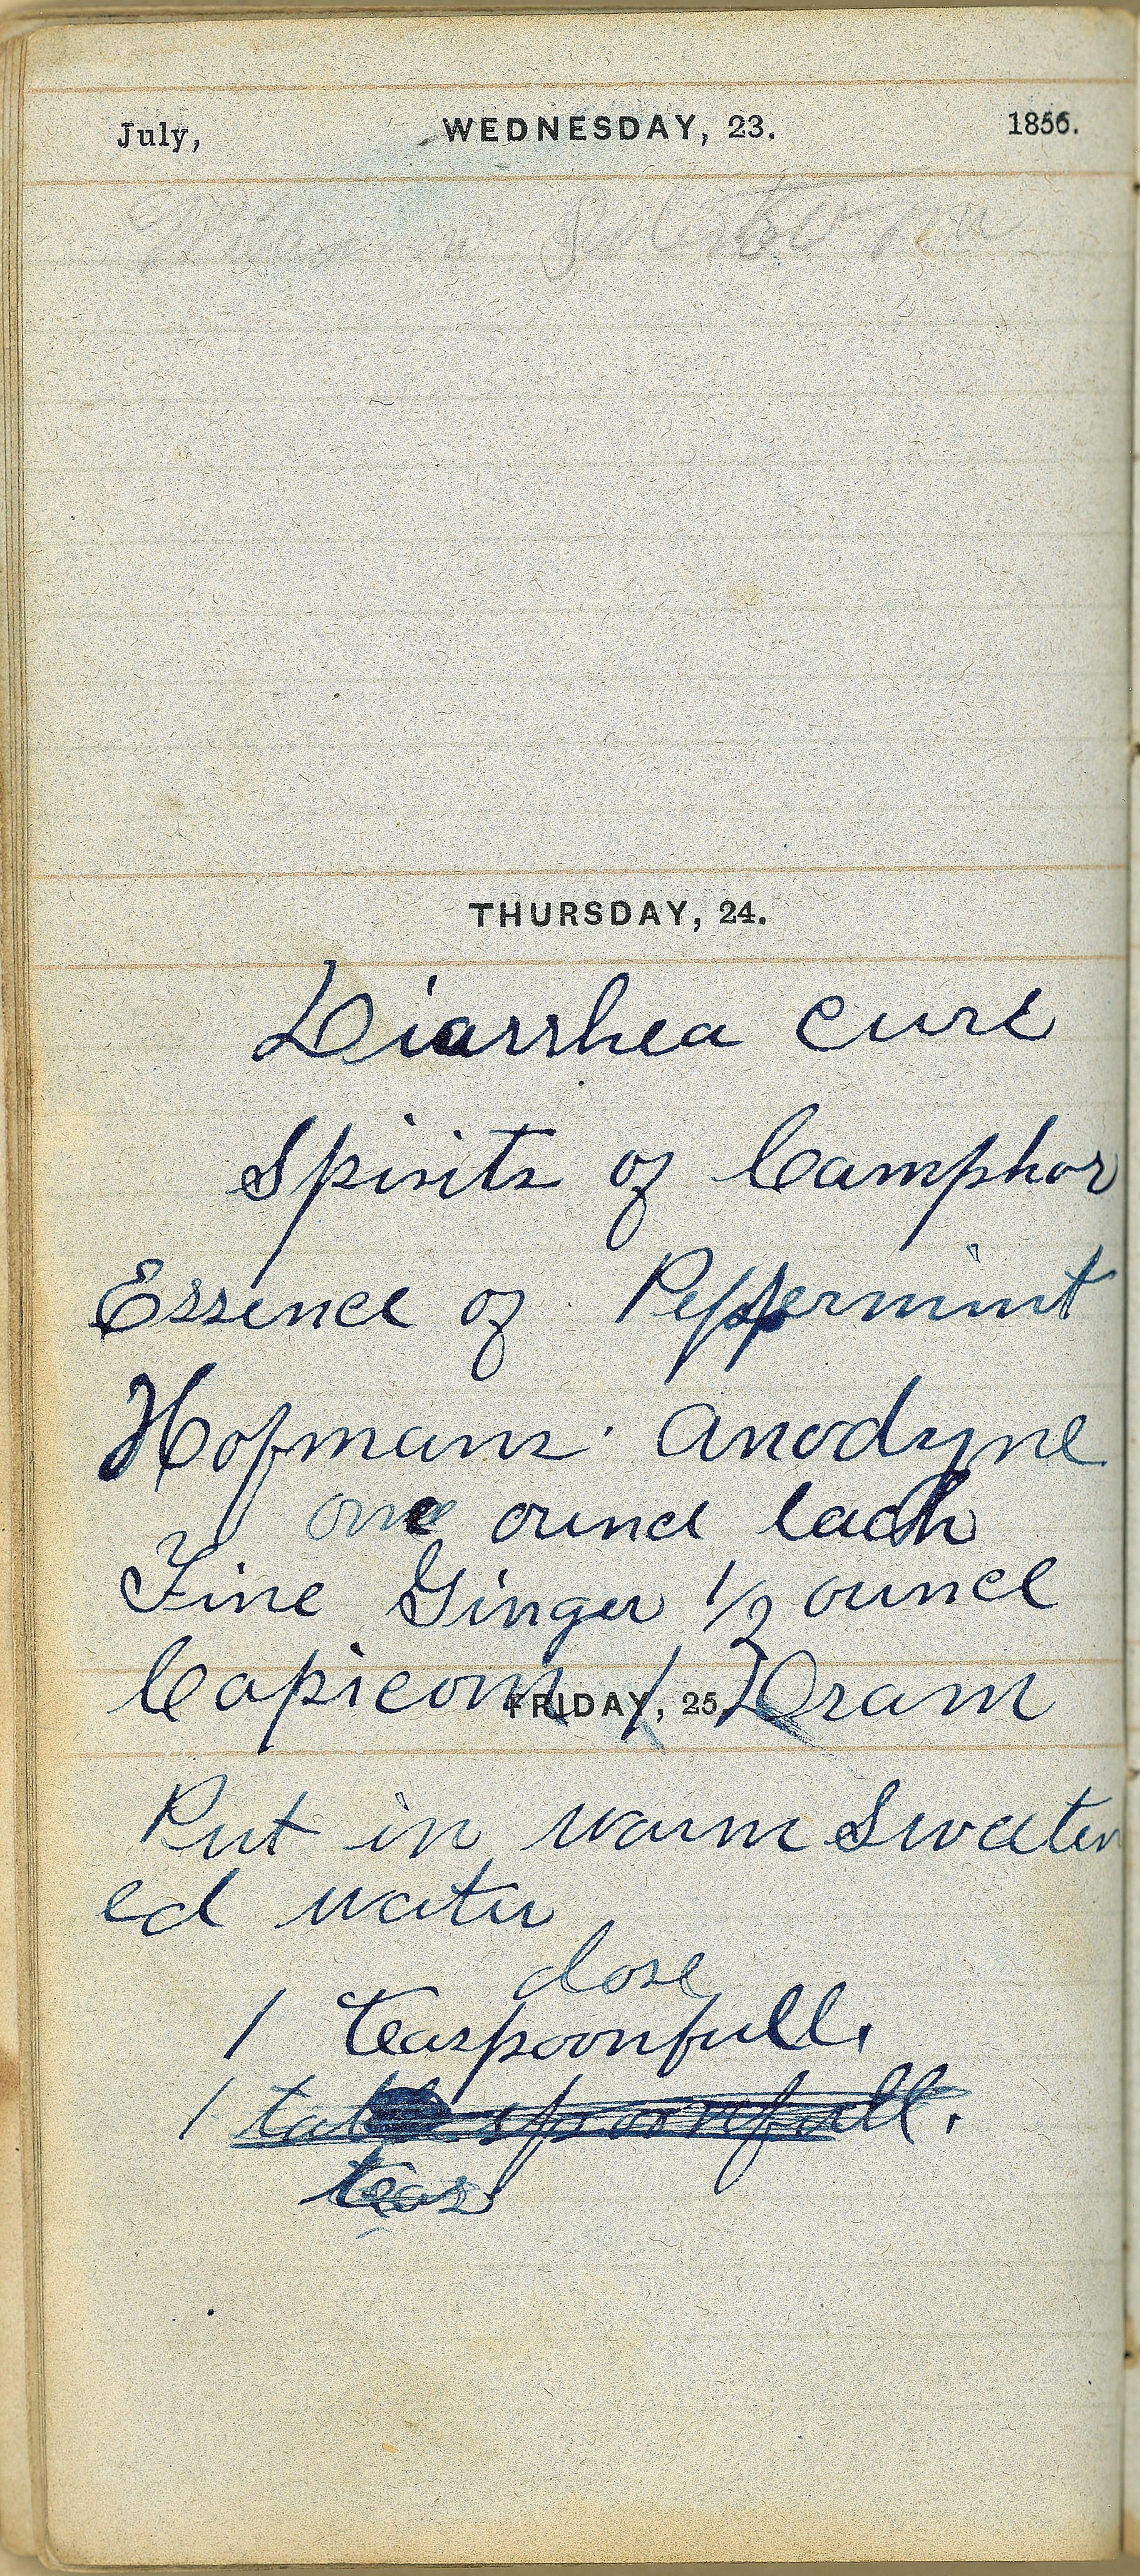 July, WEDNESDAY, 23. 1856.
THURSDAY, 24.
Diarrhea cure
Spirits of Camphor
Essence of Peppermint
Hofmans anodyne
one ounce each
Fine Ginger 1/2 ounce
Capicom 1 Dram
FRIDAY, 25.
Put in warm Sweeten
ed water
dose
1 teaspoonfull.
1 table spoonfull.
teas